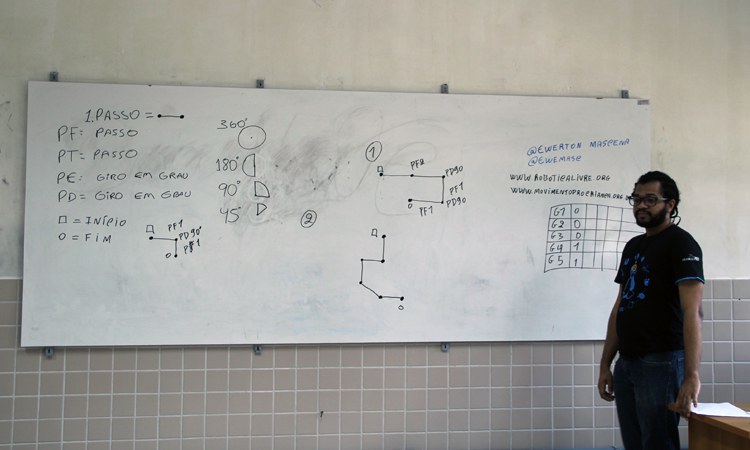 1.PASSO =
PF: PASSO
PT: PASSO
PE: GIRO EM GRAU
PD: GIRO EM GRAU
□ = INÍPIO
O = FIM
PF1
PD90°
PF1
360°
180°
90°
45°
1
PF2
PD90
PF1
PD90
PF1
2
@EWERTON MASCENA
@EWEMASC
WWW.ROBOTICALIVRE.ORG
G1 0
G2 0
G3 0
G4 1
G5 1